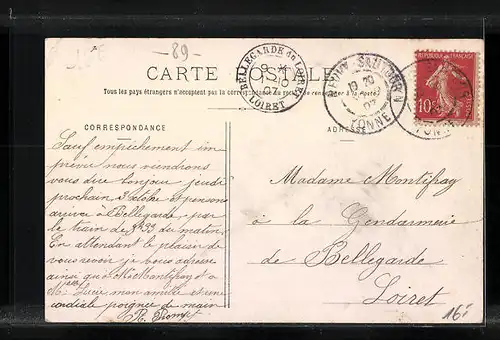 - 89 -
CARTE POSTALE
Tous les pays étrangers n'acceptent pas la correspondance au recto. (Se renseigner à la Poste)
BELLEGARDE DU LOIRET
LOIRET
07
YONNE
10
YONNE
CORRESPONDANCE
ADRESSE
Sauf empêchement im
prévu nous viendrons
vous dire bonjour jeudi
prochain 3 octobre et pensons
arriver à Bellegarde par
le train de 8h39 du matin
En attendant le plaisir de
vous revoir je vous adresse
ainsi qu'à Mr Montifray et à
Melle Lucie mon amitié et une
cordiale poignée de main
Madame Montifray
à la Gendarmerie
de Bellegarde
Loiret
16